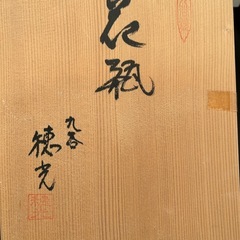 花瓶
九谷
徳光